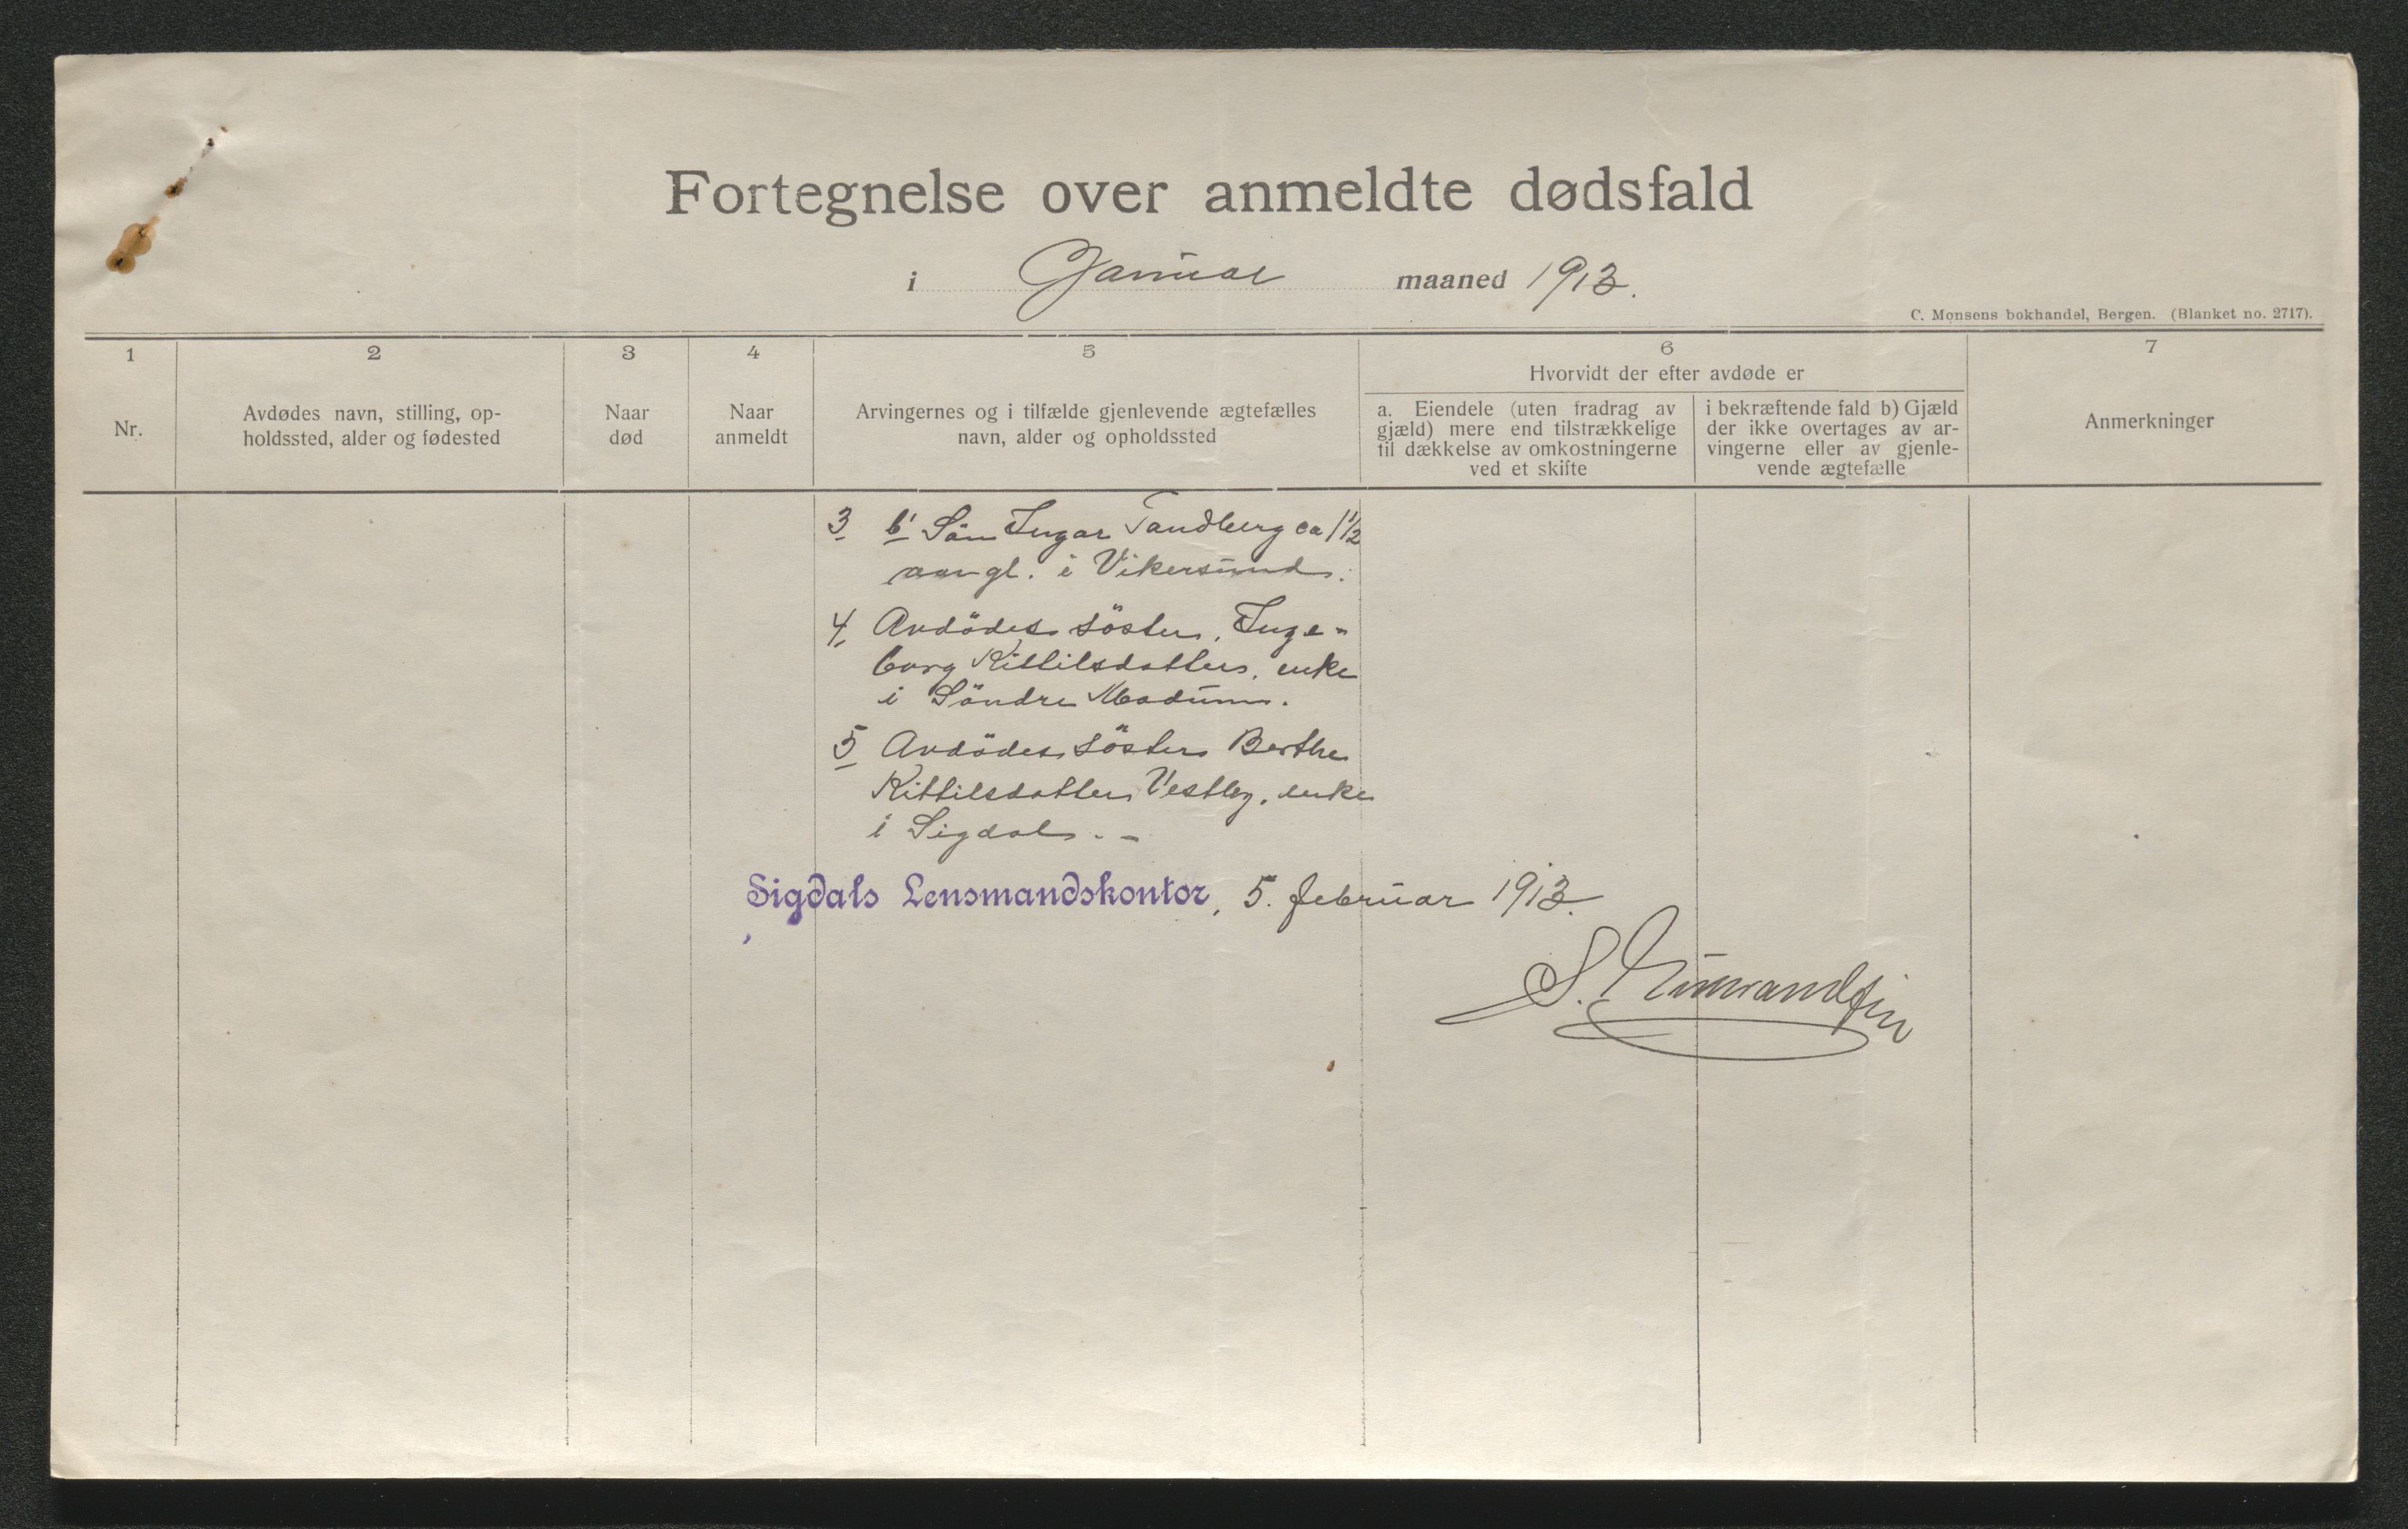 Fortegnelse over anmeldte dødsfald
i Januar maaned 1913.
C. Monsens bokhandel, Bergen. (Blanket no. 2717).
1 2 3 4 5 6 7
Hvorvidt der efter avdøde er
Nr.
Avdødes navn, stilling, op-
holdssted, alder og fødested
Naar
død
Naar
anmeldt
Arvingernes og i tilfælde gjenlevende ægtefælles
navn, alder og opholdssted
a. Eiendele (uten fradrag av
gjæld) mere end tilstrækkelige
til dækkelse av omkostningerne
ved et skifte
i bekræftende fald b) Gjæld
der ikke overtages av ar-
vingerne eller av gjenle-
vende ægtefælle
Anmerkninger
3 b' Sön Ingar Tandberg ca 1 1/2
aar gl. i Vikersund.
4, Avdödes söster, Inge-
borg Kittilsdatter, enke
i Söndre Modum.
5 Avdödes söster Berthe
Kittilsdatter Vestby, enke
i Sigdal. -
Sigdals Lensmandskontor, 5. februar 1913.
S.